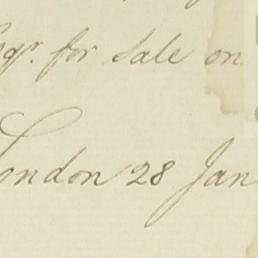 Esqr. for sale on
London 28 Jan